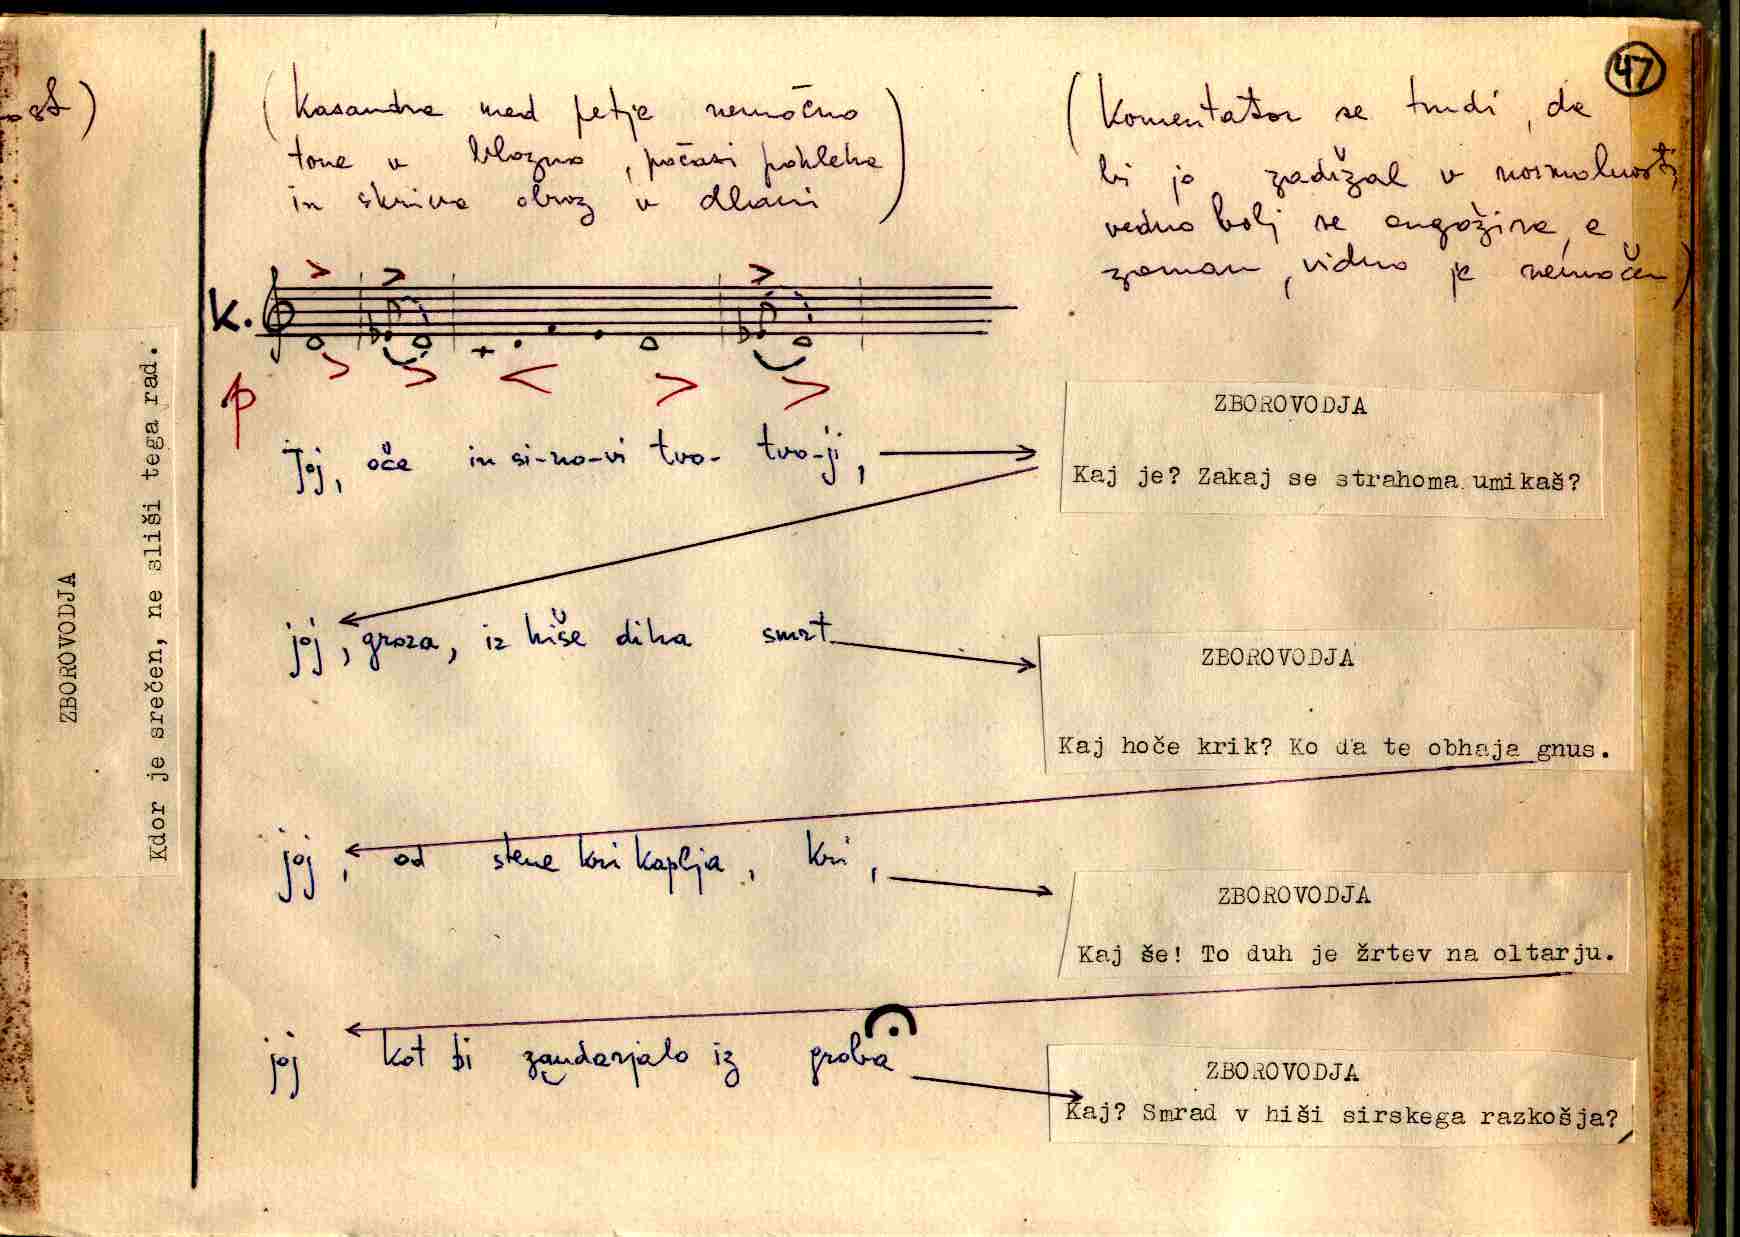 47
(Kasandra med petje nemočno
tone v blazno, počasi poklekne
in skriva obraz v dlani)
(Komentator se trudi, da
bi jo zadržal v normalnosti,
vedno bolj se angažira, a
zaman, vidno je nemočen)
ZBOROVODJA
Kdor je srečen, ne sliši tega rad.
K.
p
Joj, oče in si-no-vi tvo- tvo-ji,
ZBOROVODJA
Kaj je? Zakaj se strahoma umikaš?
joj, groza, iz hiše diha smrt
ZBOROVODJA
Kaj hoče krik? Ko da te obhaja gnus.
joj, od stene kri kaplja, kri,
ZBOROVODJA
Kaj še! To duh je žrtev na oltarju.
joj kot bi zaudarjalo iz groba
ZBOROVODJA
Kaj? Smrad v hiši sirskega razkošja?